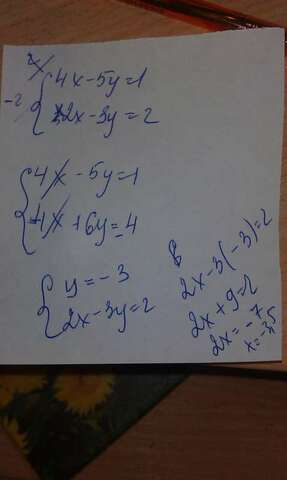 4x-5y=1
-2
2x-3y=2
4x-5y=1
-4x+6y=-4
y=-3
2x-3y=2
2x-3(-3)=2
2x+9=2
2x=-7
x=-3,5